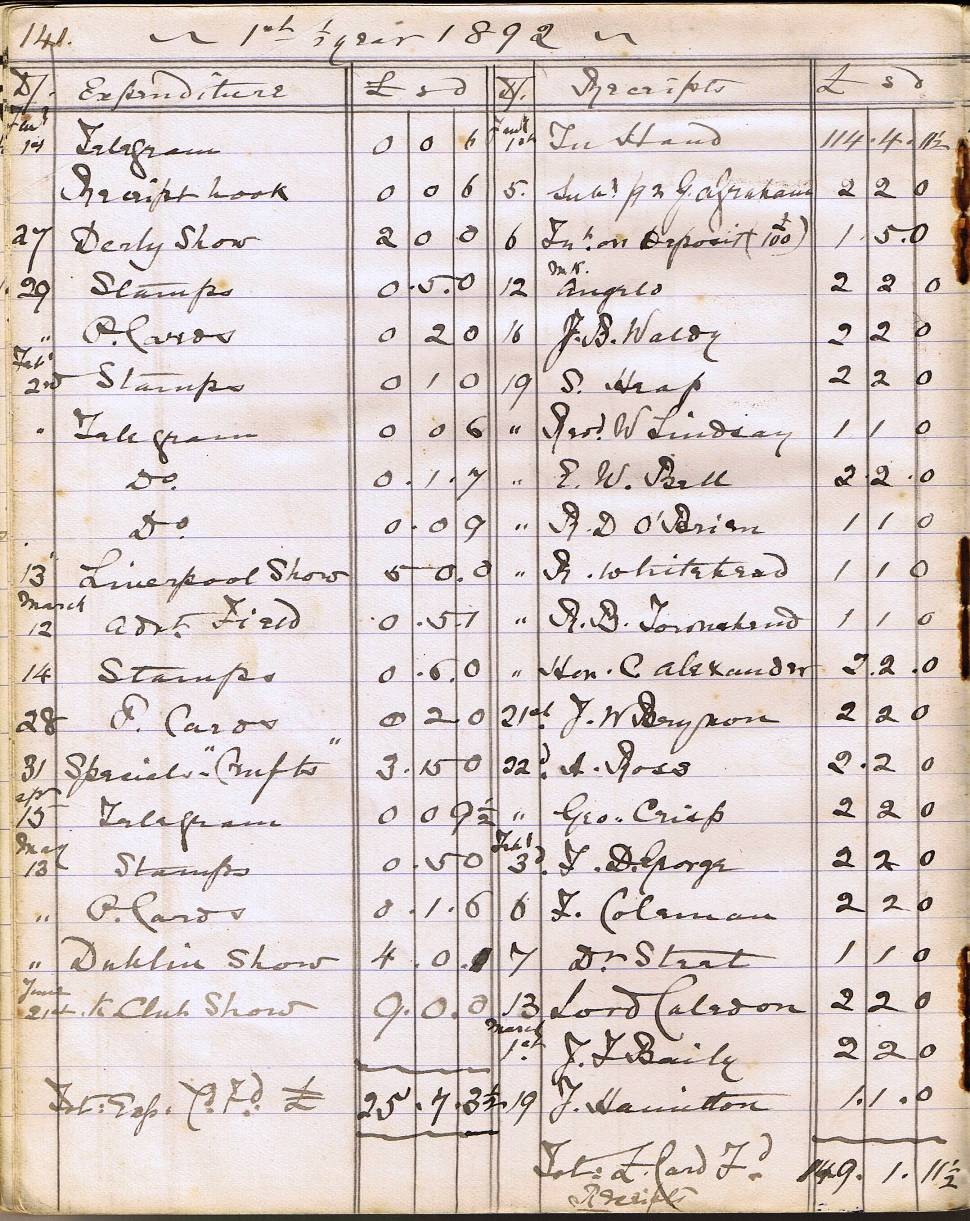 141.
~ 1st ½ year 1892 ~
D/. Expenditure £ s d D/. Receipts £ s d
Jany 1st Telegram 0 0 6 Jany 1st In Hand 114.4.11½
Receipt book 0 0 6 5. Subn p G. Graham 2 2 0
27 Derby Show 2 0 0 6 Int. on Deposit (£100) 1.5.0
29 Stamps 0.5.0 12 Mr. Angelo 2 2 0
" P. Cards 0 2 0 16 J.B. Waldy 2 2 0
Feby 2nd Stamps 0 1 0 19 S. Heap 2 2 0
" Telegram 0 0 6 " Revd. W Lindsay 1 1 0
Do. 0.1.7 " E. W. Bell 2.2.0
Do 0.0 9 " R. D O'Brien 1 1 0
13 Liverpool Show 5 0.0 " R. Whitehead 1 1 0
March 12 Advt. Field 0.5.1 " R.B. Townshend 1 1 0
14 Stamps 0.6.0 " Hon. C Alexander 2.2.0
28 P. Cards 0 2 0 21st J.W Berynon 2 2 0
31 Specials "Crufts" 3.15 0 22d. A. Ross 2.2 0
Apr 15 Telegram 0 0 9½ " Geo. Crisp 2 2 0
May 13 Stamps 0.5 0 Feby 3d. T. D. George 2 2 0
" P. Cards 0.1.6 6 F. Coleman 2 2 0
" Dublin Show 4.0. 7 Dr Street 1 1 0
June 21st K. Club Show 9.0.0 13 Lord Caledon 2 2 0
March 1st J.F Baily 2 2 0
Tot: Exp. C. Fd. £ 25.7.3½ 19 J. Hamilton 1.1.0
Tot: £ Card Fd. 149.1.11½
Receipts